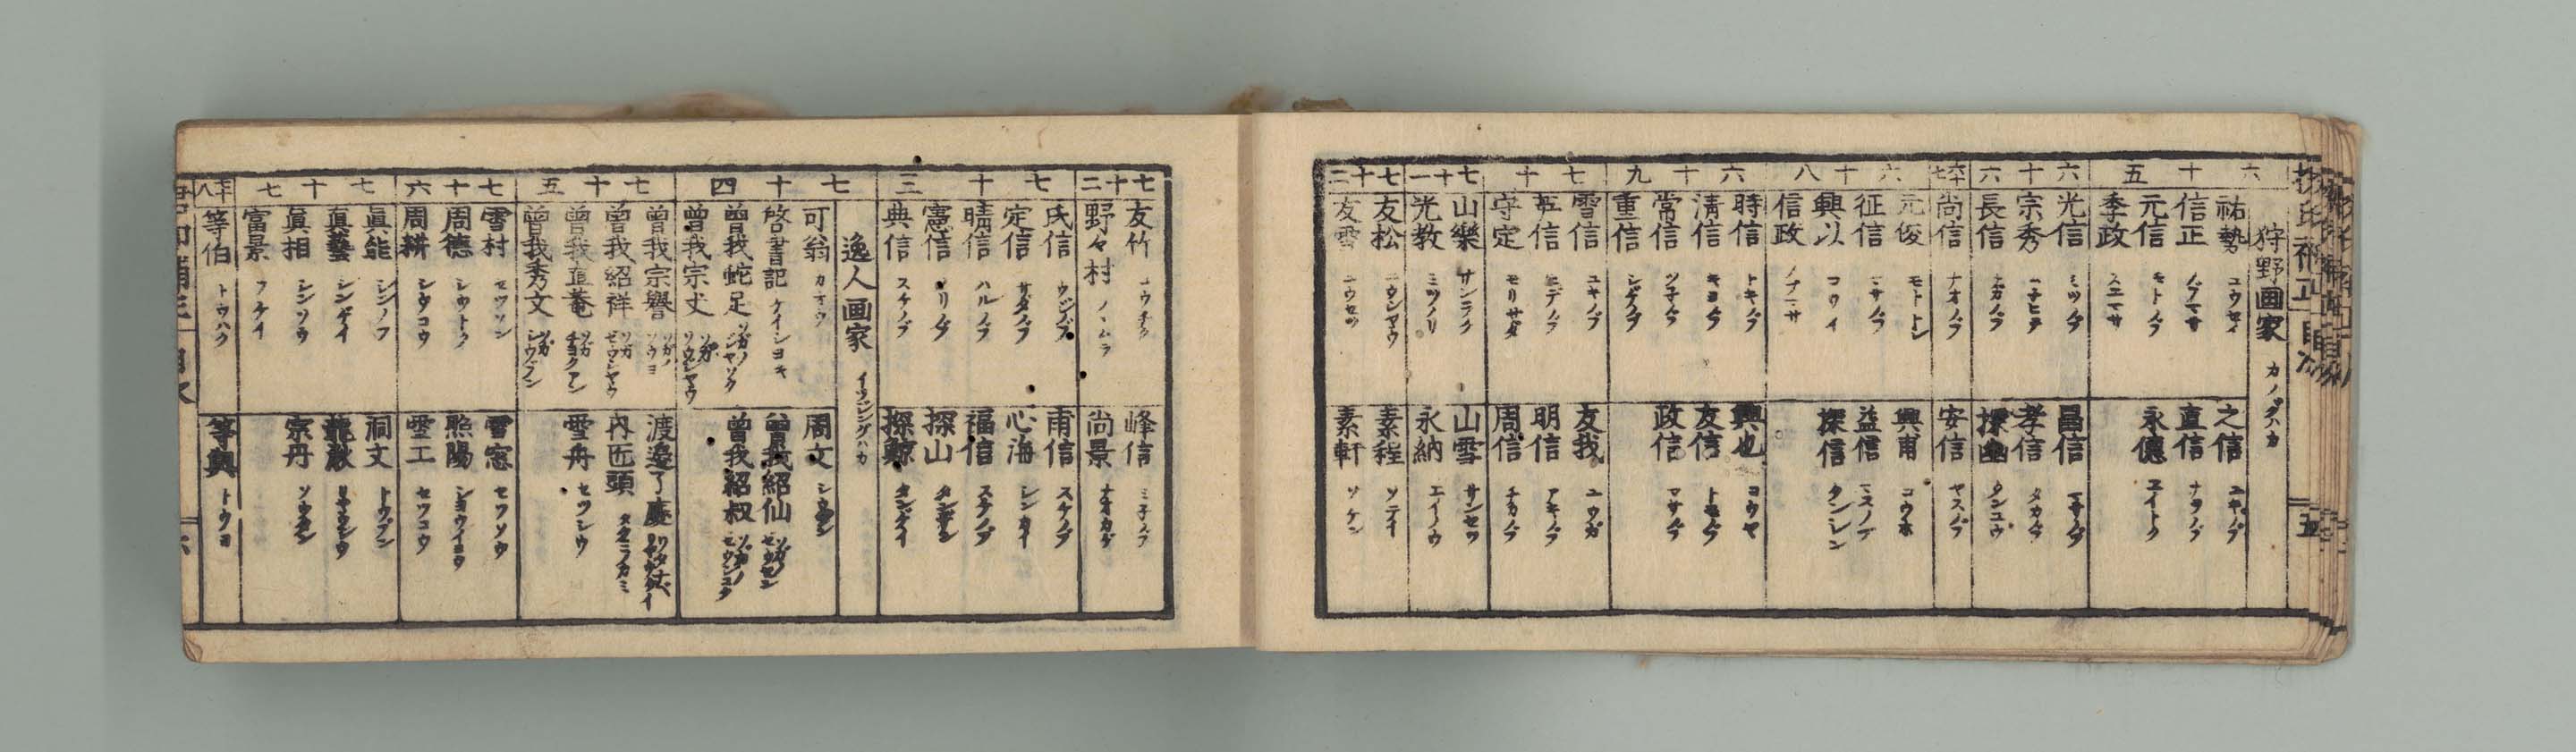 狩野画家 カノウグハカ
六十五
祐勢 ユウセイ
信正 ノブマサ
元信 モトノブ
季政 スエマサ
之信 ユキノブ
直信 ナヲノブ
永德 エイトク
六十六
光信 ミツノブ
宗秀 ムネヒデ
長信 ナガノブ
昌信 マサノブ
孝信 タカノブ
探幽 タンユウ
六十七
尚信 ナオノブ
安信 ヤスノブ
六十八
元俊 モトトシ
征信 マサノブ
興以 コウイ
信政 ノブマサ
興甫 コウホ
益信 マスノブ
探信 タンシン
六十九
時信 トキノブ
清信 キヨノブ
常信 ツネノブ
重信 シゲノブ
興也 コウヤ
友信 トモノブ
政信 マサノブ
七十
雪信 ユキノブ
秀信 ヒデノブ
守定 モリサダ
友我 ユウガ
明信 アキノブ
周信 チカノブ
七十一
山樂 サンラク
光教 ミツノリ
山雪 サンセツ
永納 エイノウ
七十二
友松 ユウシヤウ
友雪 ユウセツ
素程 ソテイ
素軒 ソケン
五
七十二
友竹 ユウチク
野々村 ノヽムラ
峰信 ミネノブ
尚景 ナオカゲ
七十三
氏信 ウジノブ
定信 サダノブ
晴信 ハルノブ
憲信 ノリノブ
典信 スケノブ
甫信 スケノブ
心海 シンカイ
福信 スケノブ
探山 タンザン
探鯨 タンゲイ
逸人画家 イツジングハカ
七十四
可翁 カオウ
啓書記 ケイシヨキ
曽我蛇足 ソガノジヤソク
曽我宗丈 ソガソウジヤウ
周文 シウブン
曽我紹仙 ソガノセウセン
曽我紹叔 ソガノセウシユク
七十五
曽我宗譽 ソガノソウヨ
曽我紹祥 ソガセウシヤウ
曽我直菴 ソガチヨクアン
曽我秀文 ソガシウブン
渡邉了慶
内匠頭 タクミノカミ
雪舟 セツシウ
七十六
雪村 セツソン
周德 シウトク
周耕 シウコウ
雪窓 セツソウ
照陽 シヨウイヨウ
雪工 セツコウ
七十七
眞能 シンノフ
眞藝 シンゲイ
眞相 シンソウ
富景 フケイ
洞文 トウブン
龍湫 リウシウ
宗丹 ソウタン
七十八
等伯 トウハク
等與 トウヨ